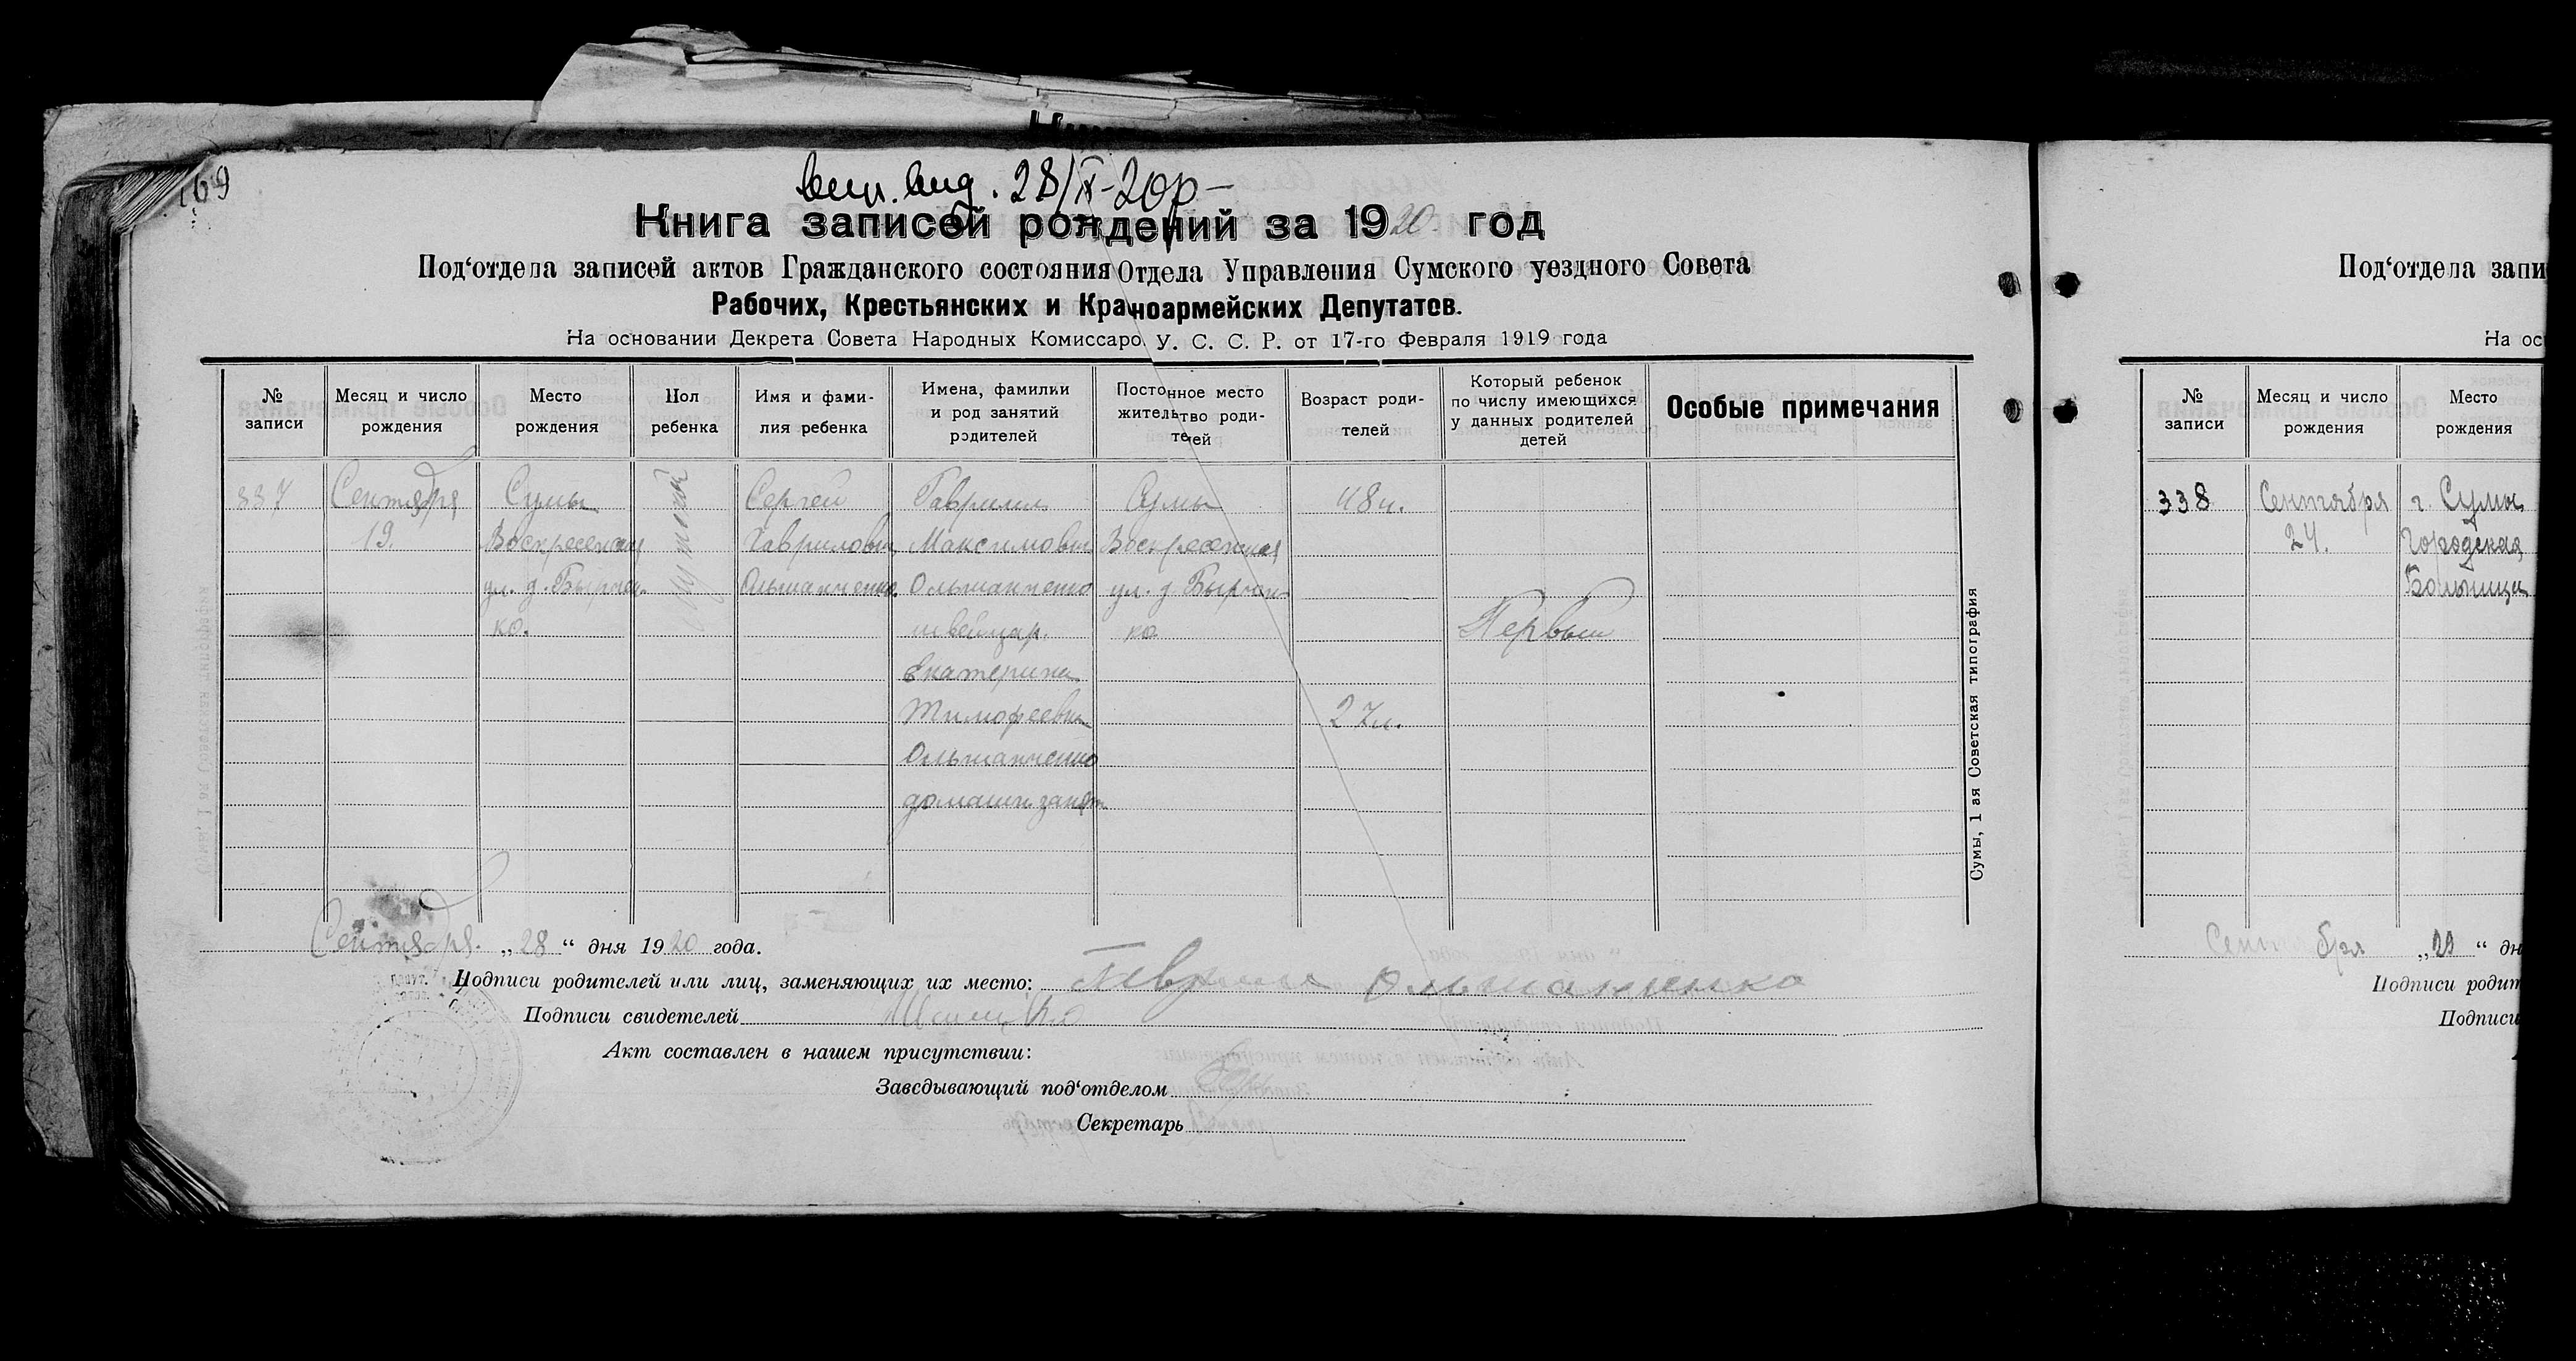 169
вып. выд. 28/IX-20р-
Книга записей рождений за 1920 год
Под‘отдела записей актов Гражданского состояния Отдела Управления Сумского уездного Совета
Рабочих, Крестьянских и Краноармейских Депутатов.
На основании Декрета Совета Народных Комиссаро У. С. С. Р. от 17-го Февраля 1919 года
№ записи
Месяц и число рождения
Место рождения
Пол ребенка
Имя и фами-
лия ребенка
Имена, фамилии
и род занятий
родителей
Постоянное место
жительство роди-
телей
Возраст роди-
телей
Который ребенок
по числу имеющихся
у данных родителей
детей
Особые примечания
337
Сентября
19.
Сумы
Воскресенская
ул. д. Бырчен-
ко.
Мужской
Сергей
Гаврилович
Ольшанченко.
Гавриил
Максимович
Ольшанченко
швейцар.
Екатерина
Тимофеевна
Ольшанченко
домашн. занят.
Сумы
Воскресенская
ул. д. Бырчен-
ко
48 л.
27 л.
Первый
Сумы, 1 ая Советская типография
Сентября. „28“ дня 1920 года.
Подписи родителей или лиц, заменяющих их место: Гавриил Ольшанченко
Подписи свидетелей
Акт составлен в нашем присутствии:
Заведывающий под‘отделом
Секретарь
Под‘отдела запи
На ос
№ записи
Месяц и число рождения
Место рождения
338
Сентября
24.
г. Сумы
Городская
Больница
Сентября „29“ дн
Подписи родит
Подписи